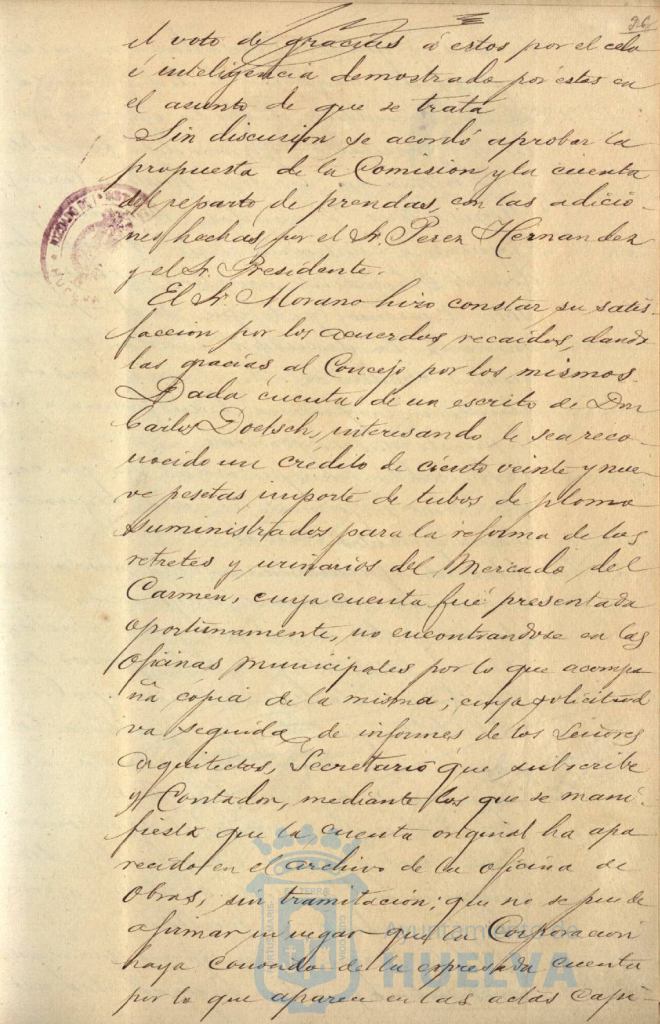 26
el voto de gracias á estos por el celo
é inteligencia demostrada por éstos en
el asunto de que se trata
Sin discusion se acordó aprobar la
propuesta de la Comision y la cuenta
del reparto de prendas, con las adicio-
nes hechas, por el Sr. Perez Hernandez
y el Sr. Presidente.
El Sr. Morano hizo constar su satis-
faccion por los acuerdos recaidos, dando
las gracias al Concejo por los mismos.
Dada cuenta de un escrito de Don
Carlos Doetsch, interesando le sea reco-
nocido un crédito de ciento veinte y nue-
ve pesetas, importe de tubos de plomo
suministrados para la reforma de los
retretes y urinarios del Mercado del
Cármen, cuya cuenta fué presentada
oportunamente, no encontrandose en las
oficinas municipales por lo que acompa
ña cópia de la misma; cuya solicitud
va seguida de informes de los Señores
Arquitectos, Secretario que subscribe
y Contador, mediante los que se mani-
fiesta que la cuenta original ha apa
recido en el archivo de la oficina de
Obras, sin tramitación; que no se puede
afirmar ni negar que la Corporacion
haya conocido de la expresada cuenta
por lo que aparece en las actas capi-
Ayuntamiento de
HUELVA